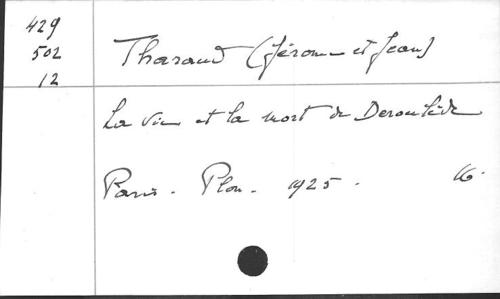 429
502
12
Tharaud (Jérome et Jean)
La vie et la mort de Deroulède
Paris - Plon - 1925 . 16.